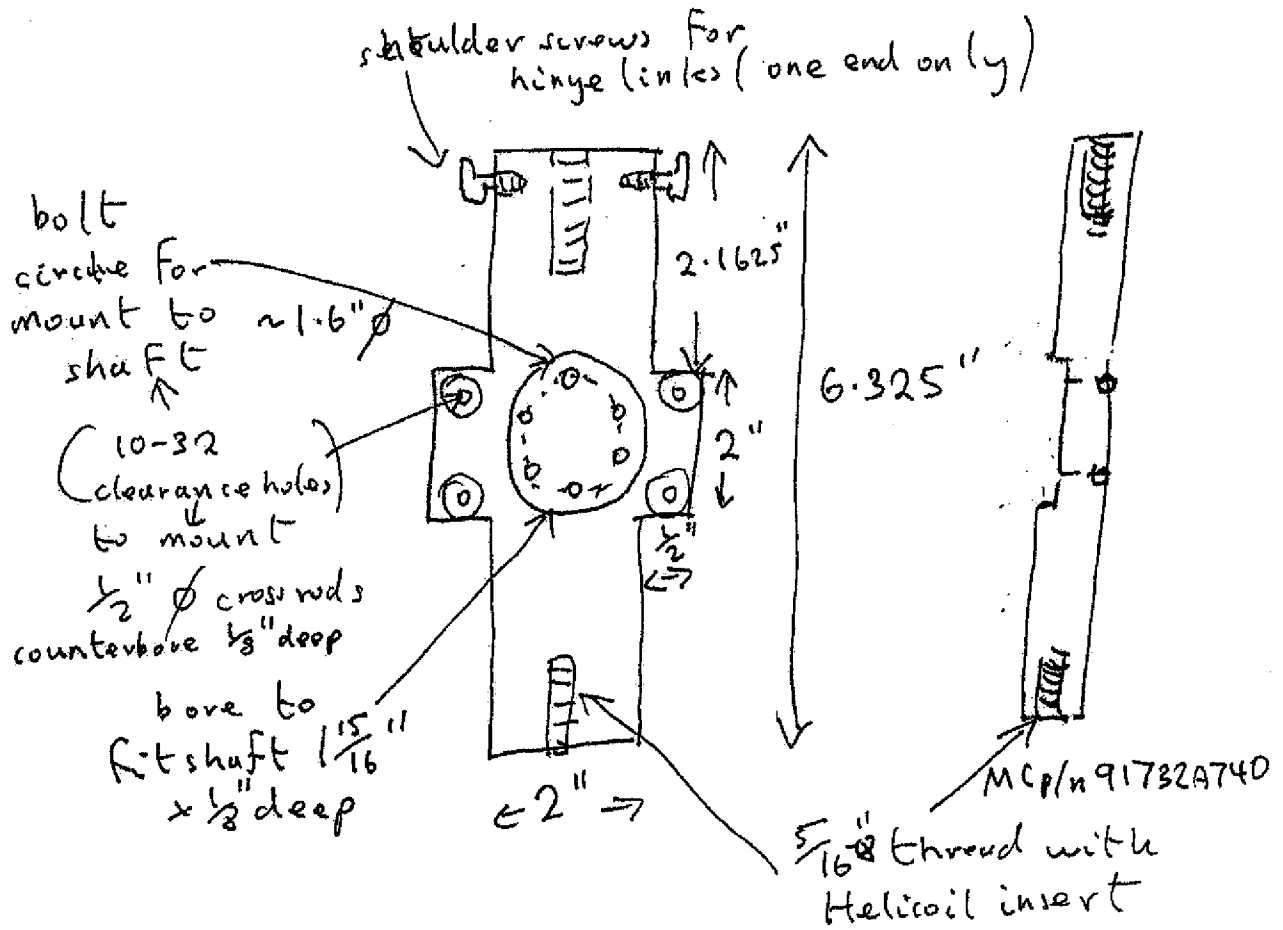 shoulder screws for
hinge links (one end only)
bolt
circle for
mount to
shaft
~1.6" ø
(10-32
clearance holes)
to mount
1/2" ø cross rods
counterbore 1/8" deep
bore to
fit shaft 1 15/16"
x 1/8" deep
2.1625"
2"
1/2"
6.325"
2"
MC p/n 91732A740
5/16" thread with
Helicoil insert